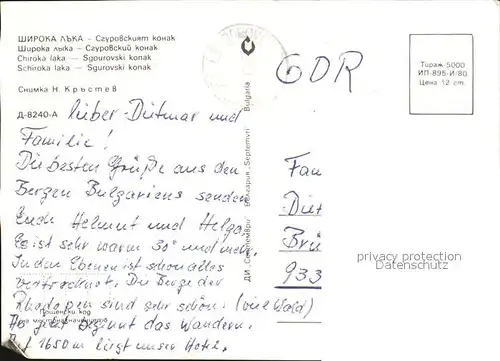 ШИРОКА ЛЪКА – Сгуровският конак
Широка лыка – Сгуровский конак
Chiroka laka – Sgourovski konak
Schiroka laka – Sgourovski konak
Снимка Н. Кръстев
Д-8240-А
GDR
Тираж-5000
ИП-895-И/80
Цена 12 ст.
Lieber Dietmar und
Familie!
Die besten Grüße aus den
Bergen Bulgariens senden
Euch Helmut und Helga.
Es ist sehr warm 30° und mehr.
In den Ebenen ist schon alles
vertrocknet. Die Berge der
Rhodopen sind sehr schön. (viel Wald)
Ab jetzt beginnt das Wandern.
Auf 1650 m liegt unser Hotel.
Пощенски код
на местоназначението
ДИ „Септември" България – Septemvri Bulgaria
Fam
Diet
Brü
933
privacy protection
Datenschutz